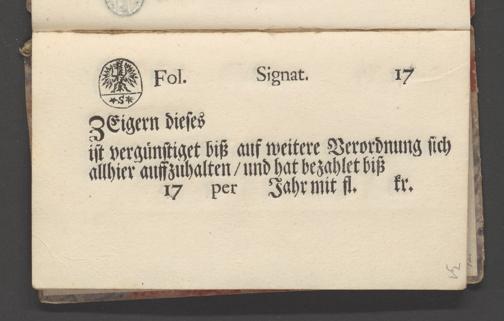 Fol. Signat. 17
ZEigern dieses
ist vergünstiget biß auf weitere Verordnung sich
allhier auffzuhalten / und hat bezahlet biß
17 per Jahr mit fl. kr.
*S*